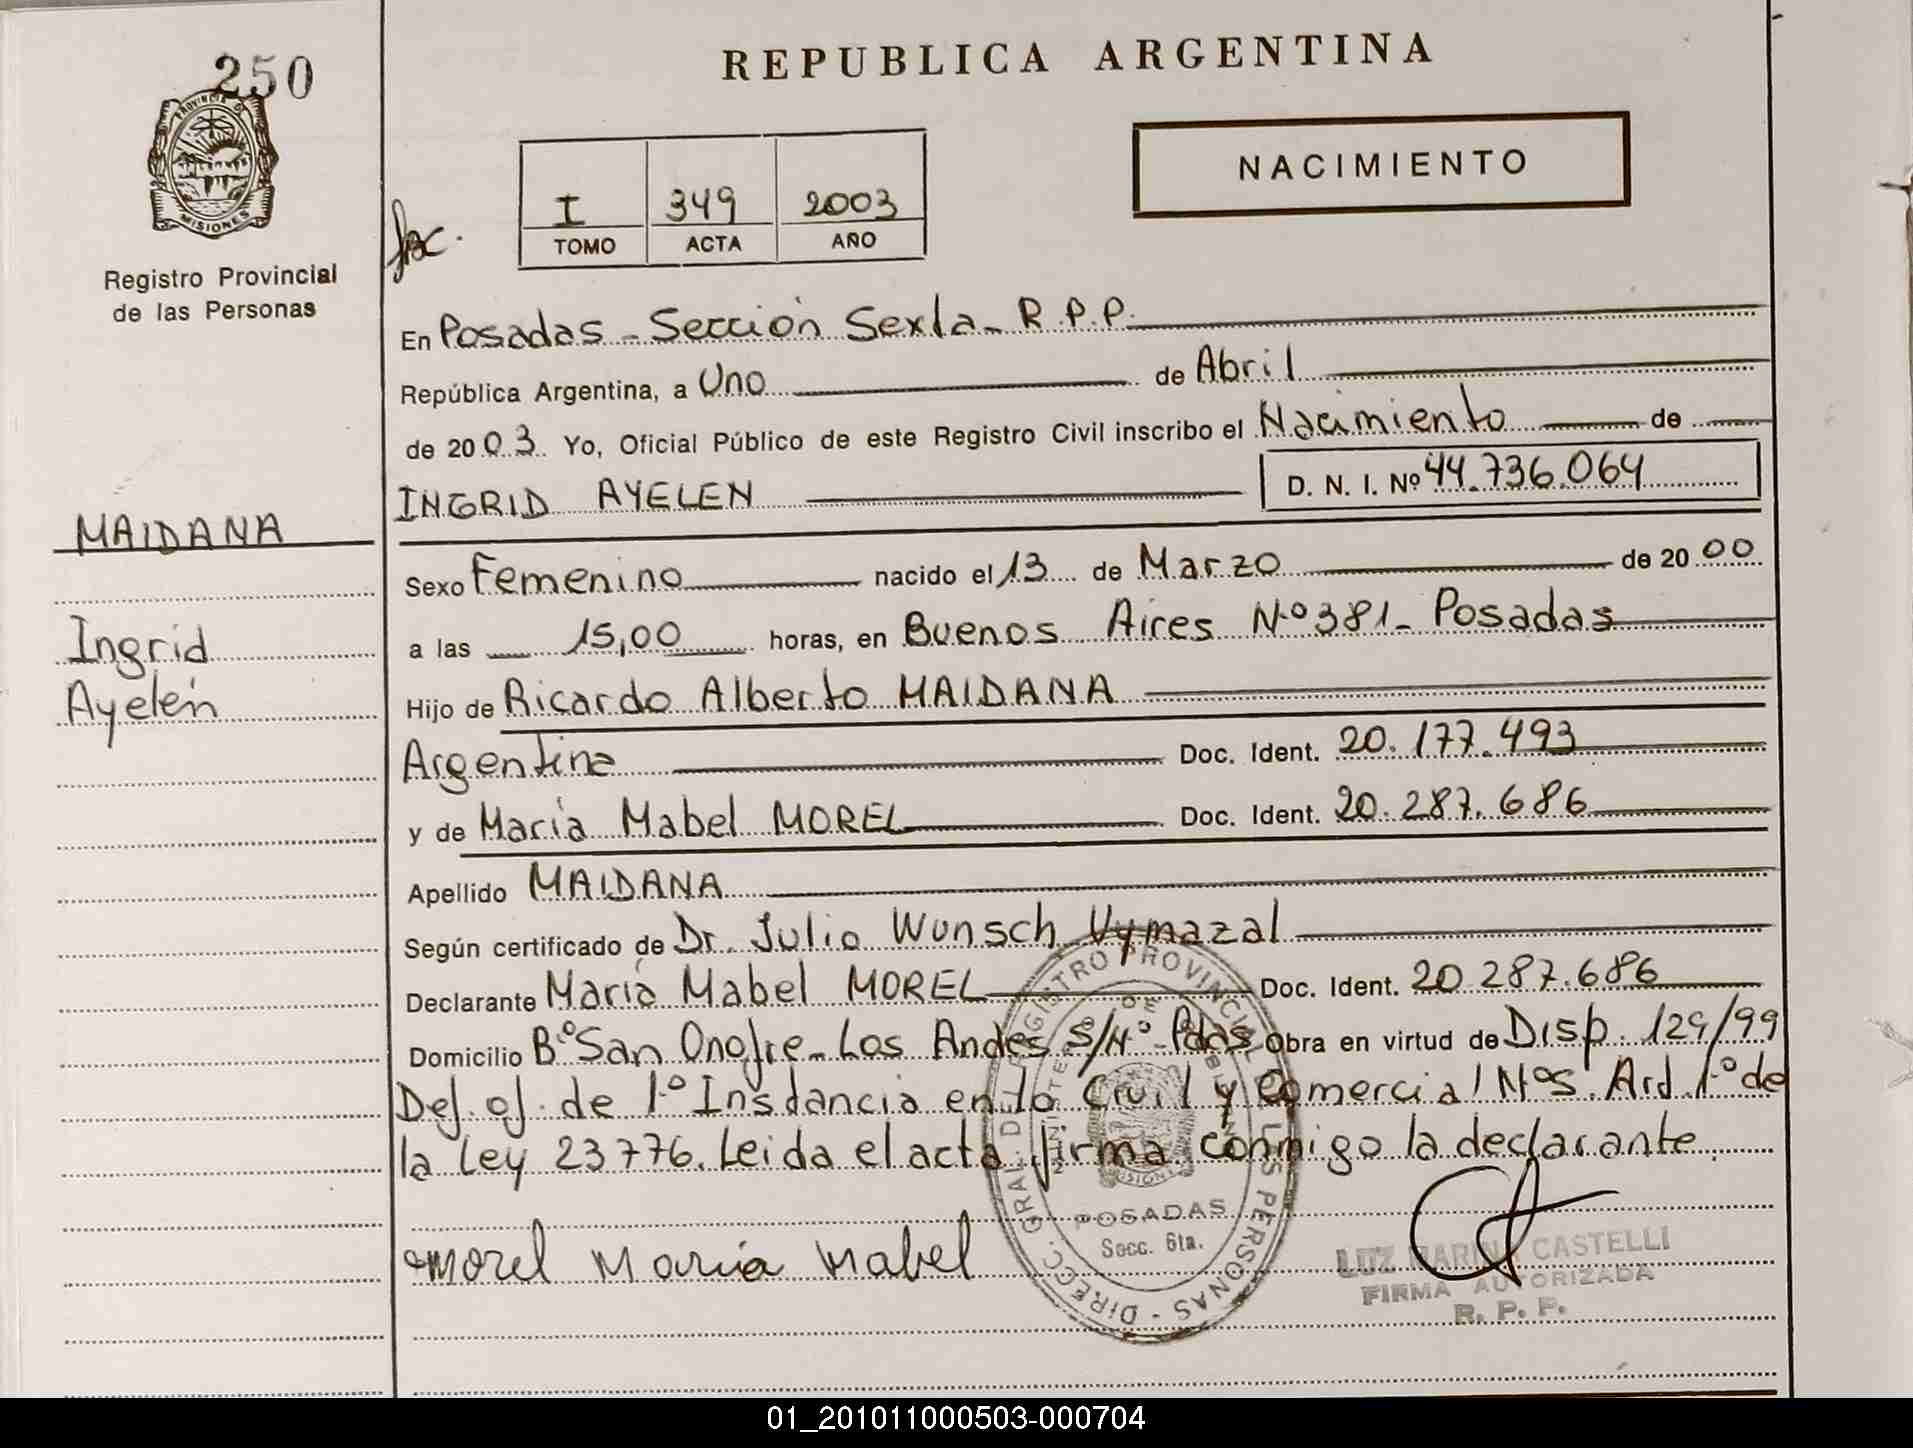 250
PROVINCIA DE
MISIONES
Registro Provincial
de las Personas
MAIDANA
Ingrid
Ayelén
REPUBLICA ARGENTINA
NACIMIENTO
I 349 2003
TOMO ACTA AÑO
En Posadas - Sección Sexta - R.P.P.
República Argentina, a Uno de Abril
de 2003 Yo, Oficial Público de este Registro Civil inscribo el Nacimiento de
INGRID AYELEN D. N. I. Nº 44.736.064
Sexo Femenino nacido el 13 de Marzo de 2000
a las 15,00 horas, en Buenos Aires Nº 381 - Posadas
Hijo de Ricardo Alberto MAIDANA
Argentina Doc. Ident. 20.177.493
y de María Mabel MOREL Doc. Ident. 20.287.686
Apellido MAIDANA
Según certificado de Dr. Julio Wunsch Vymazal
Declarante María Mabel MOREL Doc. Ident. 20.287.686
Domicilio Bº San Onofre - Los Andes S/Nº - Pdas Obra en virtud de Disp. 129/99
Def. of. de 1º Instancia en lo Civil y Comercial Nº 5. Art. 1º de
la Ley 23776. Leida el acta firma conmigo la declarante.
Morel María Mabel
DIRECC. GRAL. DEL REGISTRO PROVINCIAL DE LAS PERSONAS
POSADAS
Secc. 6ta.
LUZ MARINA CASTELLI
FIRMA AUTORIZADA
R. P. P.
01_201011000503-000704